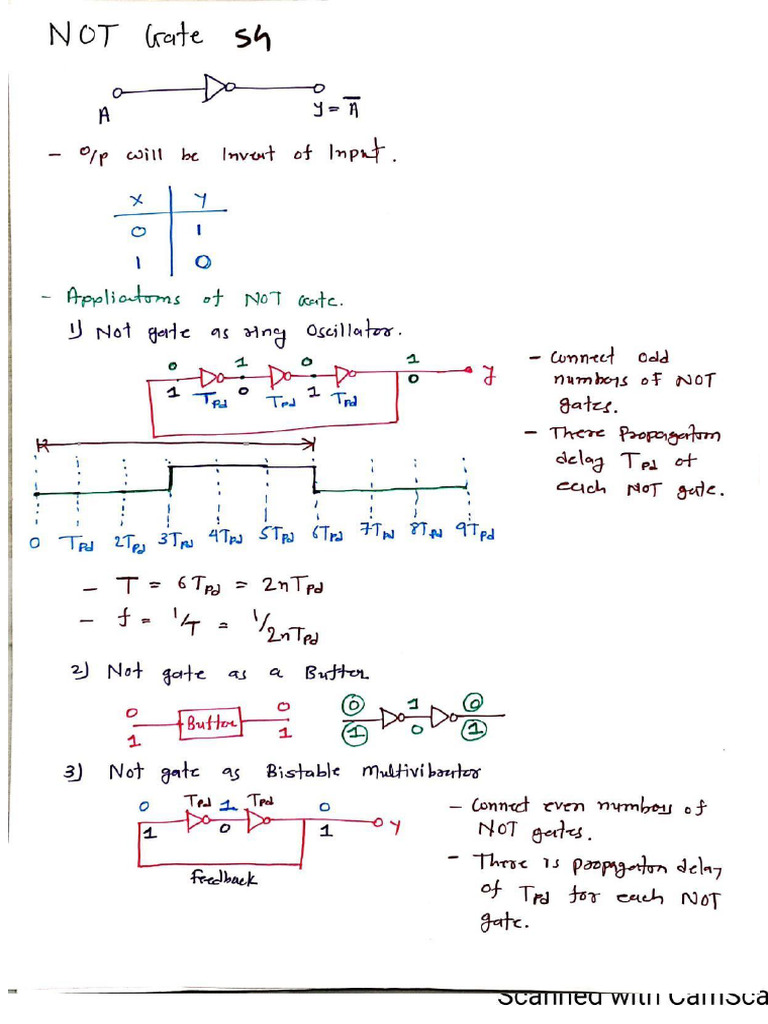 NOT Gate 54
A
Y = A̅
- O/p will be Invert of Input.
X Y
0 1
1 0
- Applications of NOT Gate.
1) Not gate as ring Oscillator.
0 1 0 1
1 Tpd 0 Tpd 1 Tpd 0 y
- Connect odd
numbers of NOT
gates.
- There Propagation
delay Tpd of
each NOT gate.
0 Tpd 2Tpd 3Tpd 4Tpd 5Tpd 6Tpd 7Tpd 8Tpd 9Tpd
- T = 6Tpd = 2nTpd
- f = 1/T = 1/2nTpd
2) Not gate as a Buffer
0 Buffer 0
1 1
0 1 0
1 0 1
3) Not gate as Bistable Multivibrator
0 Tpd 1 Tpd 0
1 0 1 Y
feedback
- Connect even numbers of
NOT gates.
- There is propagation delay
of Tpd for each NOT
gate.
Scanned with CamSca